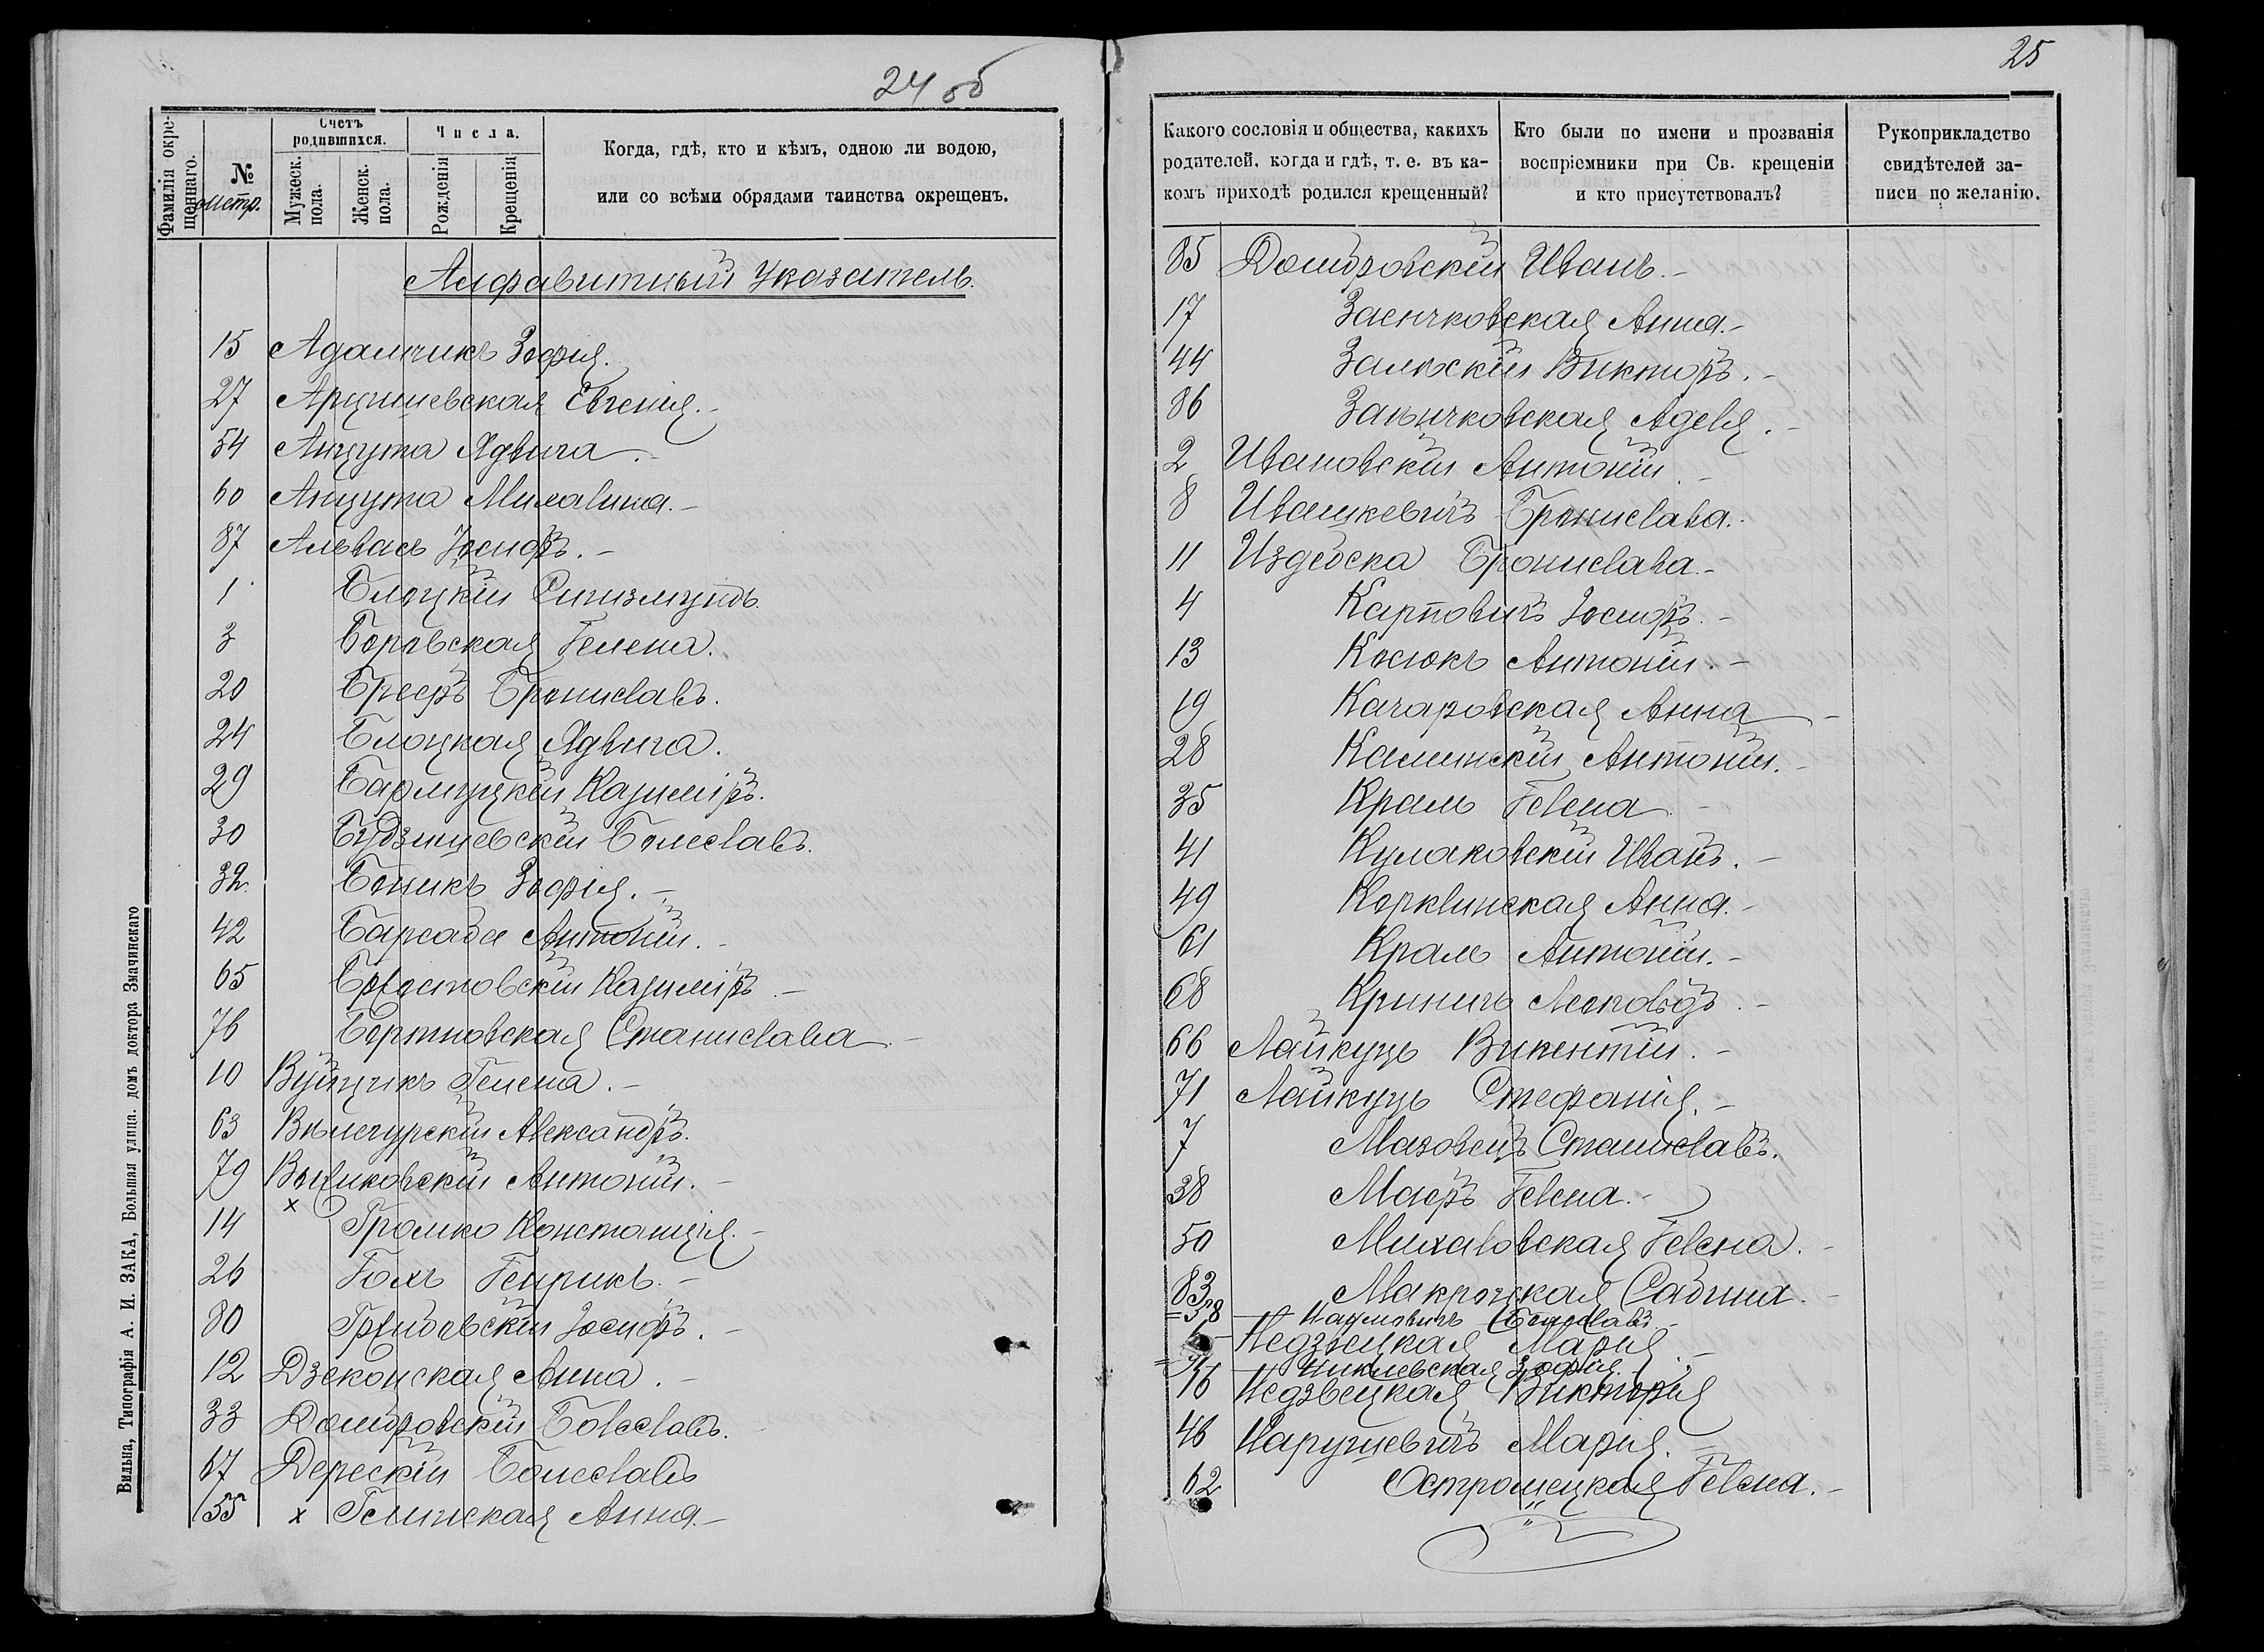 24 об
Фамилія окрещеннаго.
№ метр.
Счетъ родившихся.
Мужеск. пола.
Женск. пола.
Числа.
Рожденія
Крещенія
Когда, гдѣ, кто и кѣмъ, одною ли водою,
или со всѣми обрядами таинства окрещенъ.
Алфавитный Указатель.
15 Адамчикъ Зофия.
27 Арцишевская Евгенія.-
54 Анцута Ядвига.-
60 Анцута Михалина.-
87 Альвасъ Іосифъ.-
1 Блоцкій Сигизмундъ.
3 Боровская Гелена.
20 Брееръ Брониславъ.
24 Блоцкая Ядвига.
29 Бармуцкій Казиміръ.
30 Будзишевскій Болеславъ.
32. Боникъ Зофія.-
42 Барсада Антоній.-
65 Бржостовскій Казиміръ.-
76 Бортновская Станислава.-
10 Вуйцикъ Гелена.-
63 Вилегурскій Александръ.
79 Вылиновскій Антоній.-
14 Громко Констанція.-
26 Голъ Генрикъ.-
80 Гржибовскій Іосифъ.-
12 Дзеконская Анна.-
33 Домбровскій Болеславъ.-
67 Дерескій Болеславъ
55 х Гелинская Анна.-
Вильна, Типографія А. И. ЗАКА, Большая улица. домъ доктора Змачинскаго
25
Какого сословія и общества, какихъ
родителей, когда и гдѣ, т. е. въ ка-
комъ приходѣ родился крещенный?
Кто были по имени и прозванія
воспріемники при Св. крещеніи
и кто присутствовалъ?
Рукоприкладство
свидѣтелей за-
писи по желанію.
85 Домбровскій Иванъ.-
17 Заенчковская Анна.-
44 Залюскій Викторъ.-
86 Заіончковская Аделя.-
2 Ивановскій Антоній.-
8 Ивашкевичъ Бронислава.
11 Издебска Бронислава.-
4 Карповичъ Іосифъ.-
13 Косюкъ Антоній.-
19 Качаровская Анна-
28 Калинскій Антоній.-
35 Краль Гелена.-
41 Кулаковскій Иванъ.-
49 Корклинская Анна.-
61 Краль Антоній.-
68 Криничъ Леопольдъ.-
66 Лайкуць Викентій.-
71 Лайкуць Стефанія.-
7 Мазовецъ Станиславъ.
38 Маеръ Гелена.-
50 Михаловская Гелена.-
83 Макроцкая Сабина.-
=58 - Наумовичъ Болеславъ-
Недзвецкая Марія-
Никлевская Зофія.
16 Недзвецкая Викторія
46 Нарушевичъ Марія.-
62 Остромецкая Гелена.-